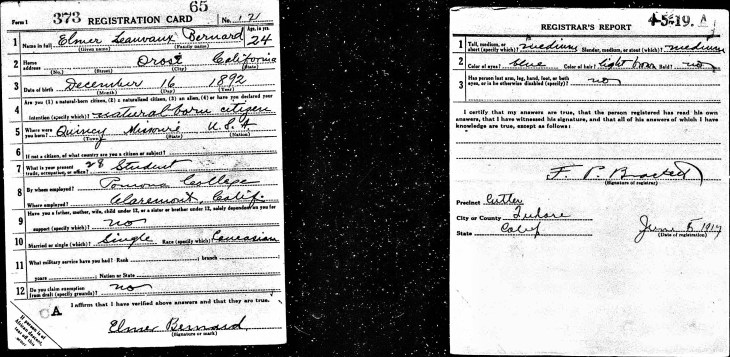 65
Form 1 373 REGISTRATION CARD No. 121
1 Name in full Elmer Bernard Age, in yrs. 24
(Given name) (Family name)
2 Home address Orosi California
(No.) (Street) (City) (State)
3 Date of birth December 16 1892
(Month) (Day) (Year)
4 Are you (1) a natural-born citizen, (2) a naturalized citizen, (3) an alien, (4) or have you declared your
intention (specify which)? natural born citizen
5 Where were you born? Quincy Missouri U.S.A.
(Town) (State) (Nation)
6 If not a citizen, of what country are you a citizen or subject?
7 What is your present trade, occupation, or office? 28 Student
8 By whom employed? Pomona College
Where employed? Claremont, Calif.
9 Have you a father, mother, wife, child under 12, or a sister or brother under 12, solely dependent on you for
support (specify which)? no
10 Married or single (which)? Single Race (specify which)? Caucasian
11 What military service have you had? Rank branch
years Nation or State
12 Do you claim exemption from draft (specify grounds)? no
A I affirm that I have verified above answers and that they are true.
Elmer Bernard
(Signature or mark)
If person is of African descent,
REGISTRAR'S REPORT
1 Tall, medium, or short (specify which)? medium Slender, medium, or stout (which)? medium
2 Color of eyes? blue Color of hair? light brown Bald? no
3 Has person lost arm, leg, hand, foot, or both
eyes, or is he otherwise disabled (specify)? no
I certify that my answers are true, that the person registered has read his own
answers, that I have witnessed his signature, and that all of his answers of which I have
knowledge are true, except as follows:
F. P. Brackett
(Signature of registrar)
Precinct Cutler
City or County Tulare
State Calif
June 5 1917
(Date of registration)